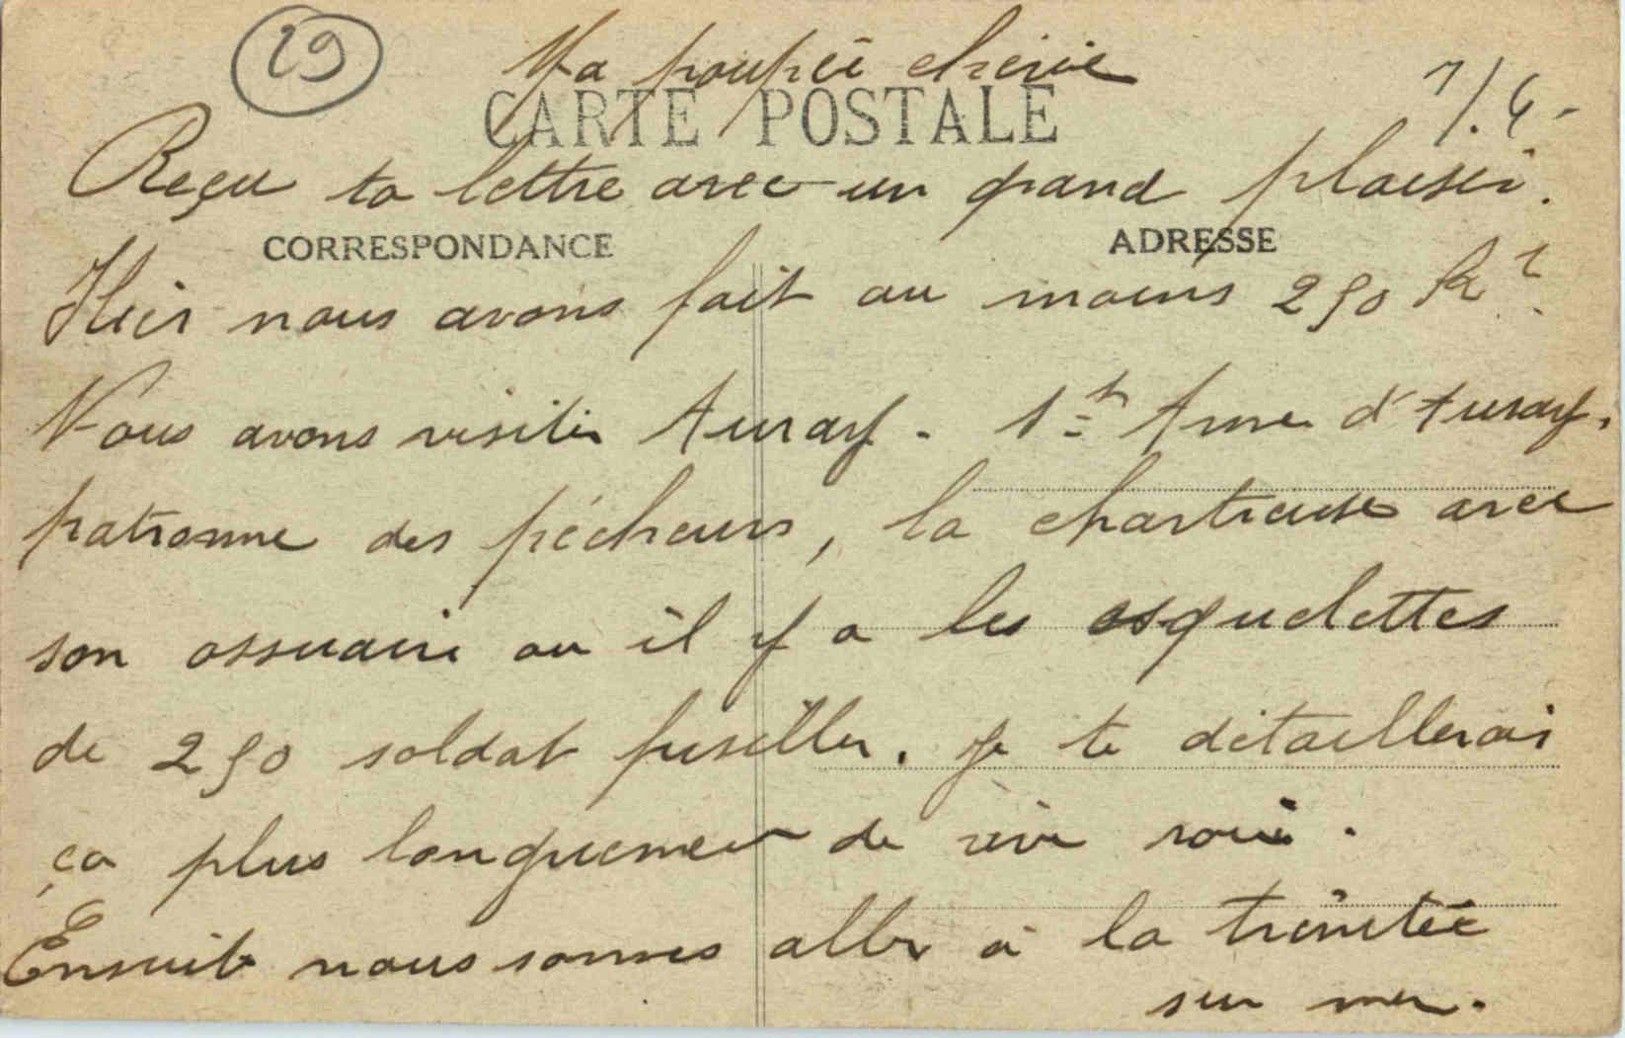 29
Ma poupée chérie
7/.6-
CARTE POSTALE
Reçu ta lettre avec un grand plaisir.
CORRESPONDANCE
ADRESSE
Hier nous avons fait au moins 250
Nous avons visiter Auray. Ste Anne d'Auray.
patronne des pécheurs, la chartreuse avec
son ossuaire ou il y a les esquelettes
de 250 soldat fusiller. je te détaillerais
ça plus longuement de vive voix.
Ensuite nous sommes aller à la trinitée
sur mer.